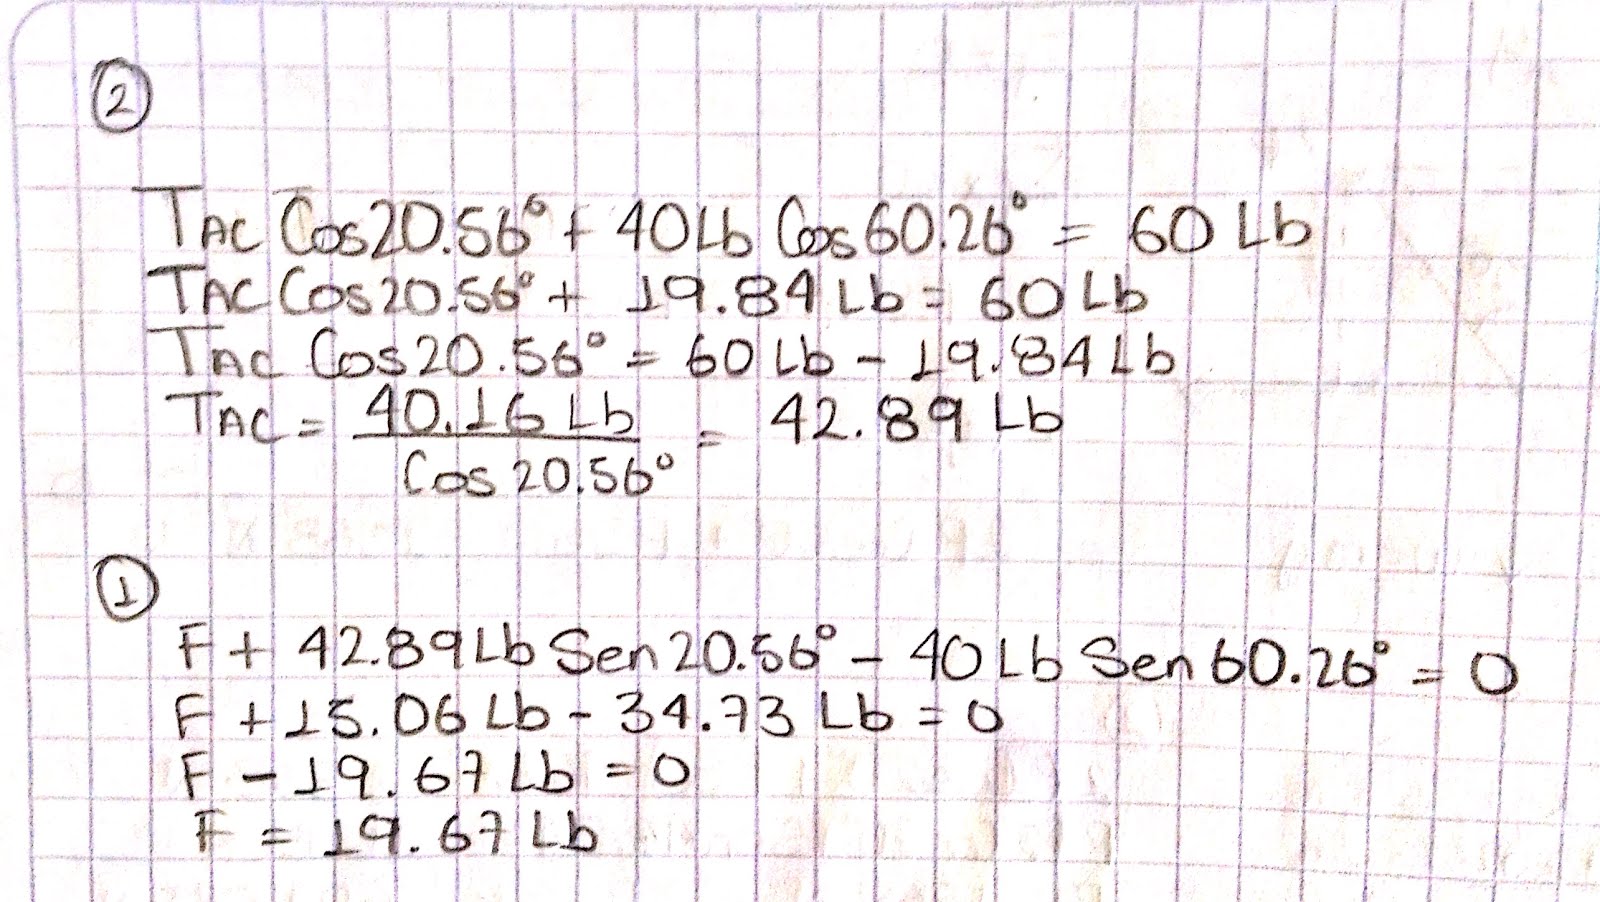 ②
TAC Cos20.56° + 40Lb Cos60.26° = 60 Lb
TAC Cos20.56° + 19.84 Lb = 60 Lb
TAC Cos20.56° = 60 Lb - 19.84 Lb
TAC = 40.16 Lb / Cos 20.56° = 42.89 Lb
①
F + 42.89Lb Sen20.56° - 40Lb Sen60.26° = 0
F + 15.06 Lb - 34.73 Lb = 0
F - 19.67 Lb = 0
F = 19.67 Lb